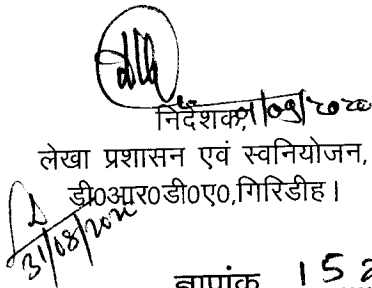 निदेशक,
लेखा प्रशासन एवं स्वनियोजन,
डी0आर0डी0ए0,गिरिडीह।
31/08/2020
ज्ञापांक 152